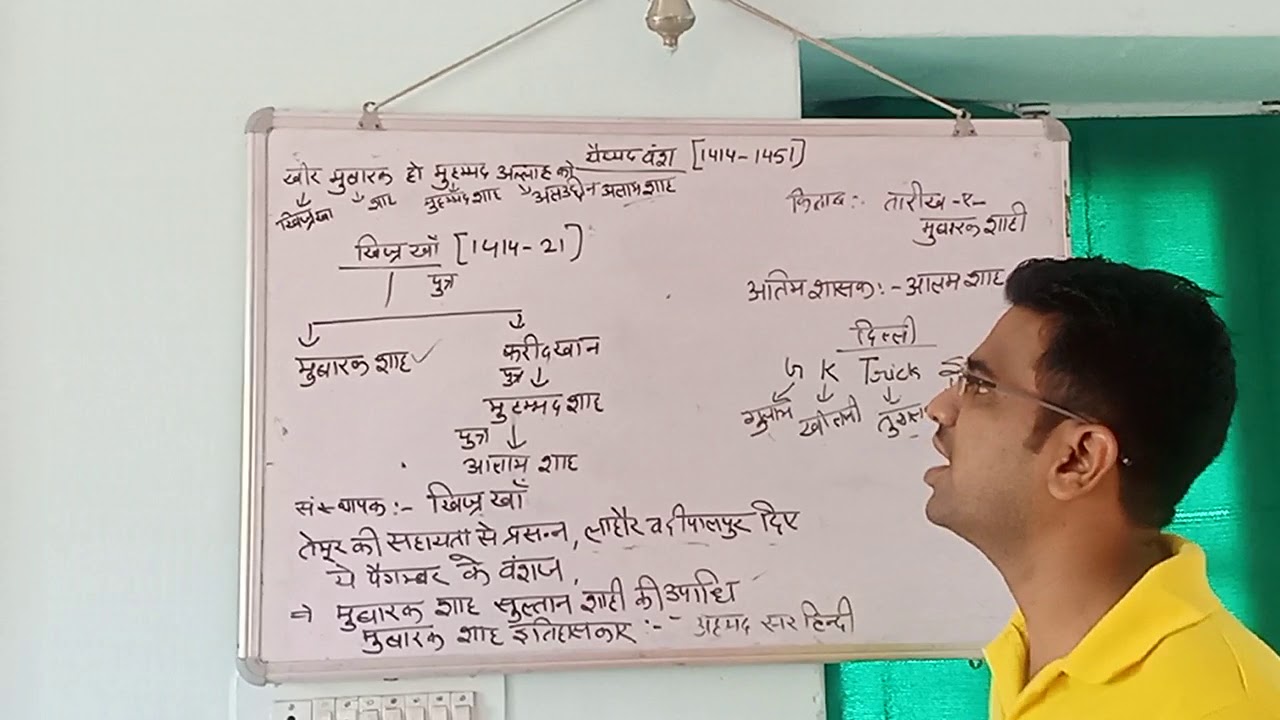 सैय्यद वंश [1414-1451]
खीर मुबारक हो मुहम्मद अल्लाह को
खिज्रखा शाह मुहम्मद शाह अलाउद्दीन आलम शाह
किताब :- तारीख-ए-
मुबारक शाही
खिज्र खाँ [1414-21]
पुत्र
मुबारक शाह ✓ फरीदखान
पुत्र
मुहम्मद शाह
पुत्र
आलाम शाह
अतिम शासक :- आलम शाह
दिल्ली
G K Trick
गुलाम खीलजी
संस्थापक :- खिज्र खाँ
तेमूर की सहायता से प्रसन्न, लाहौर व दीपालपुर दिए
ये पैगम्बर के वंशज,
⇒ मुबारक शाह सुल्तान शाही की उपाधि
मुबारक शाह इतिहासकार :- अहमद सरहिन्दी